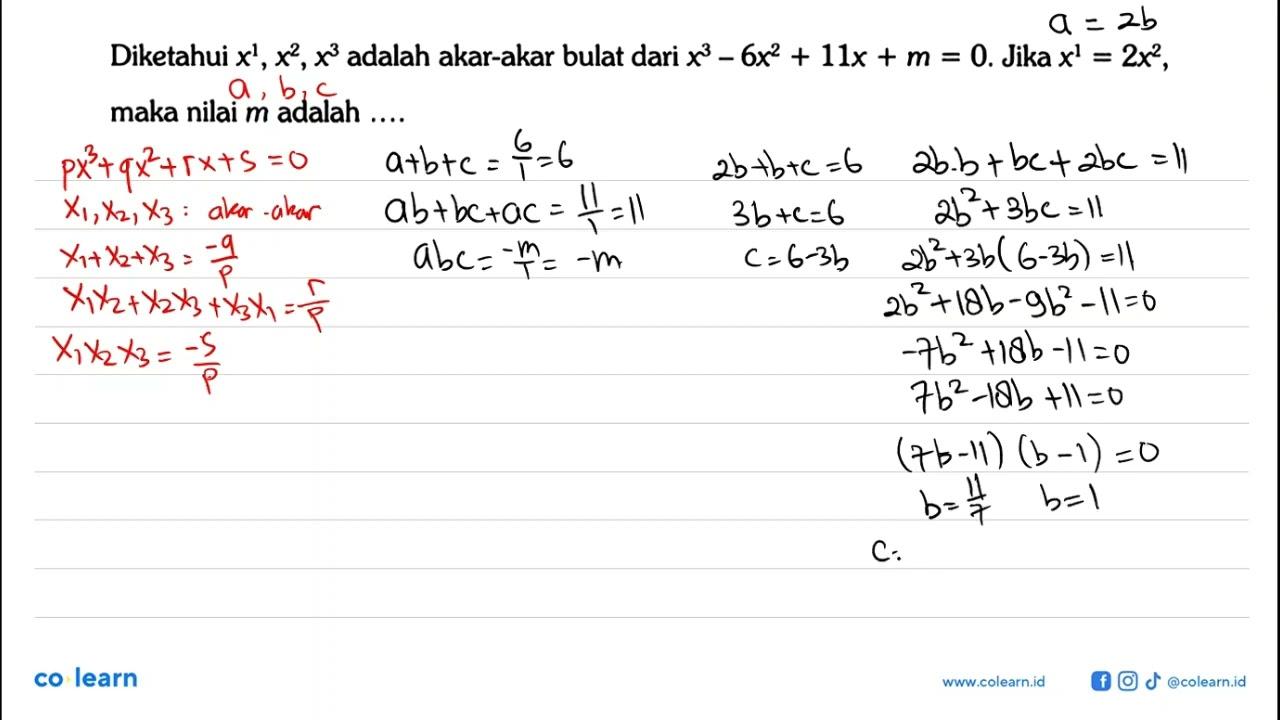 a = 2b
Diketahui x¹, x², x³ adalah akar-akar bulat dari x³ – 6x² + 11x + m = 0. Jika x¹ = 2x²,
a, b, c
maka nilai m adalah ....
px³ + qx² + rx + s = 0
x₁, x₂, x₃ : akar-akar
x₁ + x₂ + x₃ = -q/p
x₁x₂ + x₂x₃ + x₃x₁ = r/p
x₁x₂x₃ = -s/p
a+b+c = 6/1 = 6
ab+bc+ac = 11/1 = 11
abc = -m/1 = -m
2b+b+c = 6
3b+c = 6
c = 6-3b
2b.b + bc + 2bc = 11
2b² + 3bc = 11
2b² + 3b(6-3b) = 11
2b² + 18b - 9b² - 11 = 0
-7b² + 18b - 11 = 0
7b² - 18b + 11 = 0
(7b-11) (b-1) = 0
b = 11/7 b = 1
c =
co learn
www.colearn.id
@colearn.id